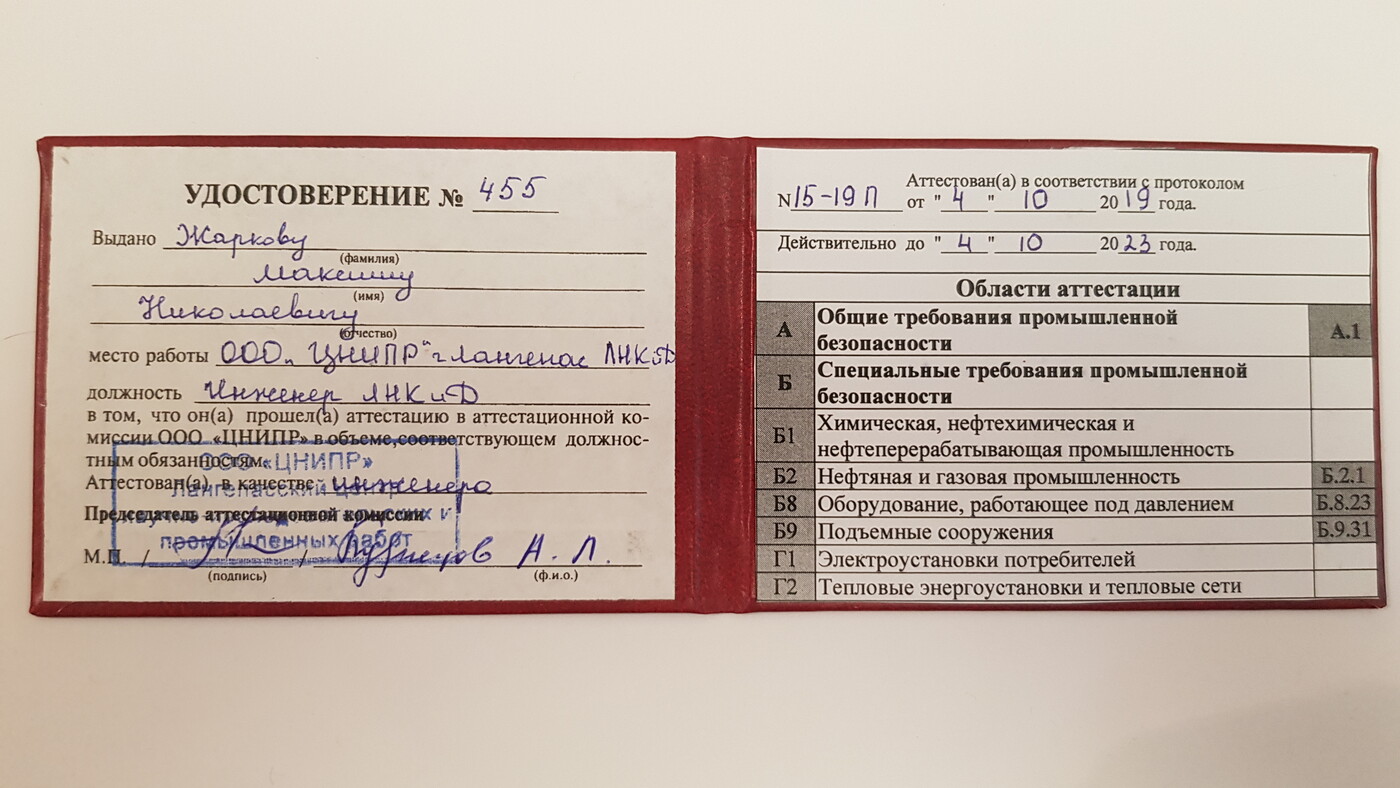 УДОСТОВЕРЕНИЕ № 455
Выдано Жаркову
(фамилия)
Максиму
(имя)
Николаевичу
(отчество)
место работы ООО „ЦНИПР“ г Лангепас ЛНКиД
должность Инженер ЛНКиД
в том, что он(а) прошел(а) аттестацию в аттестационной ко-
миссии ООО «ЦНИПР» в объеме,соответствующем должнос-
тным обязанностям.
ООО «ЦНИПР»
Лангепасский центр
Аттестован(а) в качестве инженера
Председатель аттестационной комиссии
промышленных работ
М.П. / / Кузнецов А. Л.
(подпись) (ф.и.о.)
Аттестован(а) в соответствии с протоколом
N 15-19 П от "4" 10 2019 года.
Действительно до "4" 10 2023 года.
Области аттестации
А Общие требования промышленной А.1
безопасности
Б Специальные требования промышленной
безопасности
Б1 Химическая, нефтехимическая и
нефтеперерабатывающая промышленность
Б2 Нефтяная и газовая промышленность Б.2.1
Б8 Оборудование, работающее под давлением Б.8.23
Б9 Подъемные сооружения Б.9.31
Г1 Электроустановки потребителей
Г2 Тепловые энергоустановки и тепловые сети